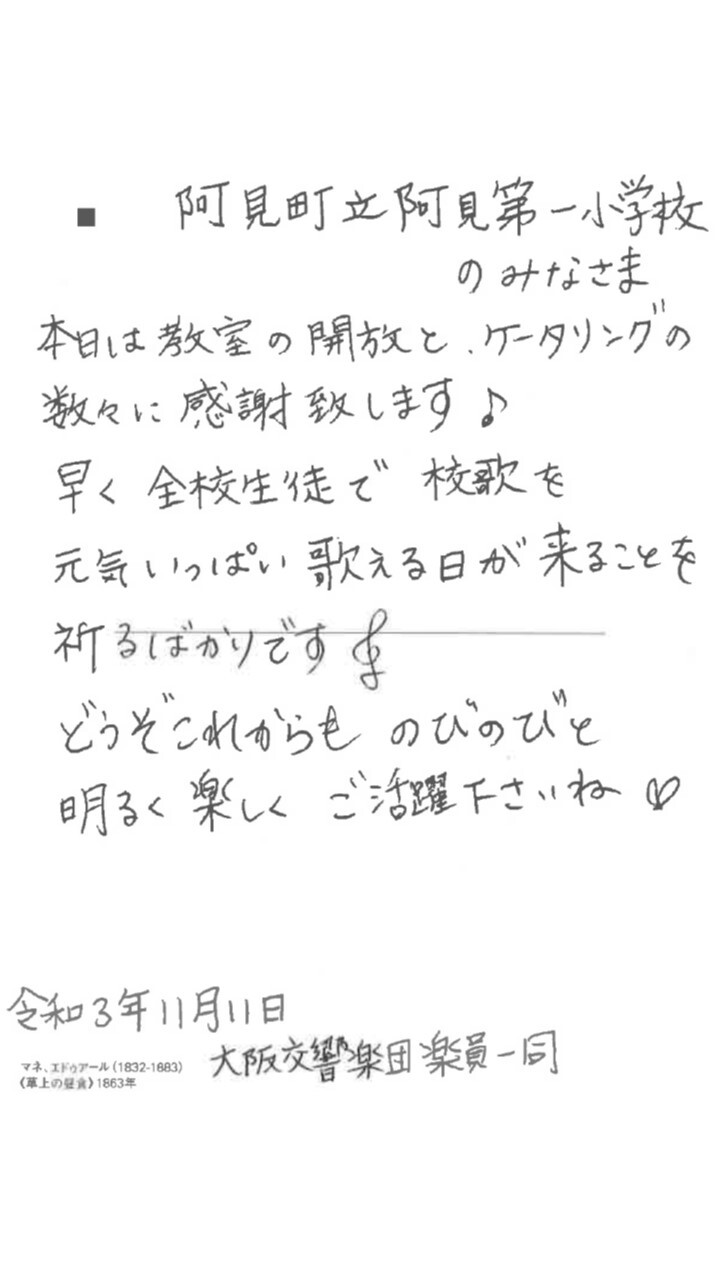 ■ 阿見町立阿見第一小学校
のみなさま
本日は教室の開放と、ケータリングの
数々に感謝致します♪
早く全校生徒で 校歌を
元気いっぱい歌える日が来ることを
祈るばかりです𝄞
どうぞこれからも のびのびと
明るく楽しく ご活躍下さいね♡
令和3年11月11日
大阪交響楽団楽員一同
マネ、エドゥアール(1832-1883)
《草上の昼食》1863年